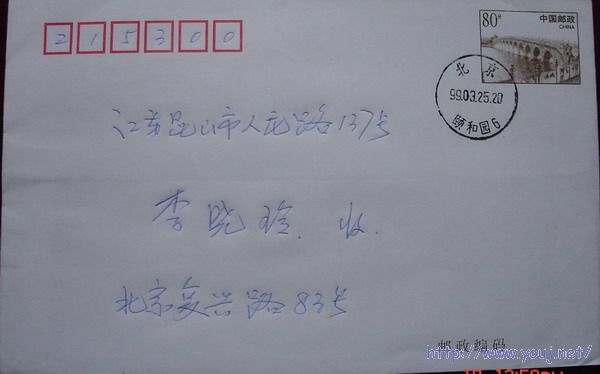 215300
80分 中国邮政
CHINA
北京
99.03.25.20
颐和园6
江苏昆山市人民路137号
李晓玲 收
北京复兴路83号
邮政编码
http://www.youj.net/